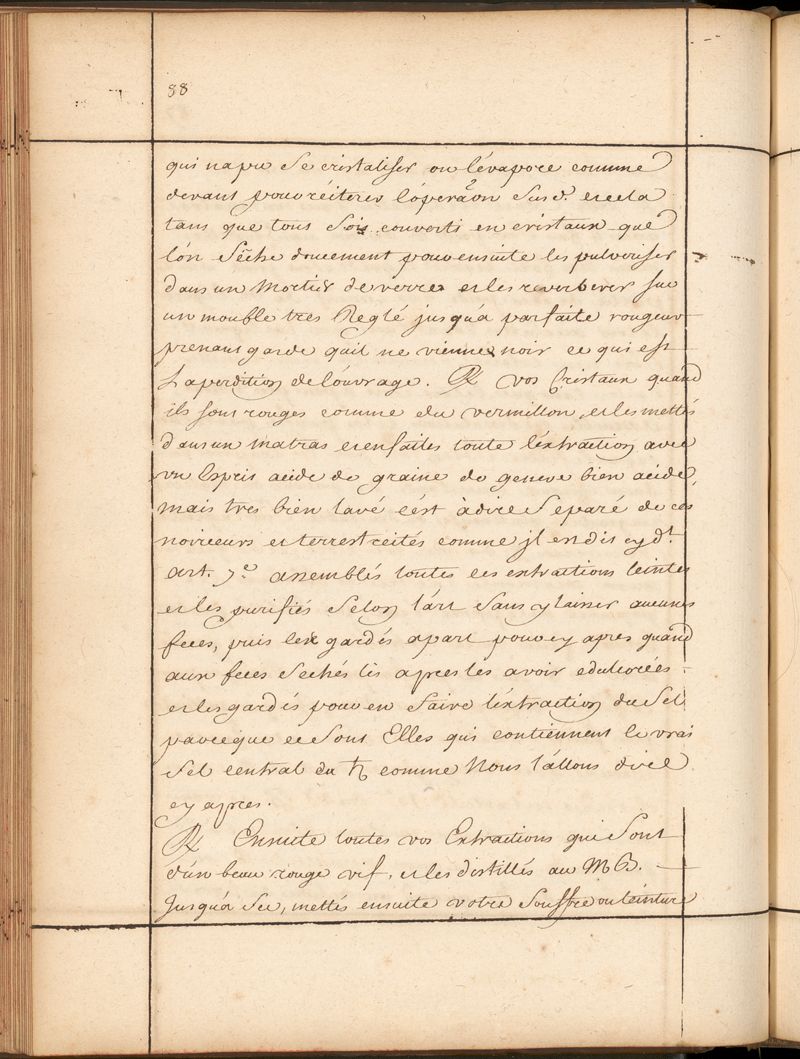 88
qui na pu Se cristaliser on lévapore comme
devant pour réiterer lópera͠on Susd. et cela
tans que tous Soit converti en cristaux que
lón Sêche doucement pour ensuite les pulveriser
dans un Mortier de verre et les reverberer sur
un moufle tres Reglé jusquá parfaite rougeur
prenant garde quil ne vienne noir ce qui est
La perdition de lóuvrage. ℞ vos Cristaux quand
ils sont rouges comme du vermillon, et les mettés
dans un matras et en faites toute léxtraction avec
un Esprit acide de graine de genevre bien acide,
mais tres bien lavé cést àdire Separé de ces
noirceurs et terrestreités comme jl en dit cy dt.
art. 7.e assemblés toutes les extractions teintes
et les purifiés Selon lárt Sans y laisser aucunes
feces, puis les gardés apart pour cy apres quand
aux feces Sechés les apres les avoir edulcorées
et les gardés pour en faire léxtraction du Sel
parceque ce Sont Elles qui contiennent le vrai
Sel central du ♄ comme Nous lállons dire
cy apres.
℞ Ensuite toutes vos Extractions qui Sont
dún beau rouge vif, et les distillés au M B.
Jusquá Sec, mettés ensuite votre Souffre ou teinture